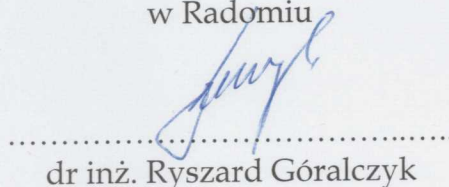 w Radomiu
dr inż. Ryszard Góralczyk